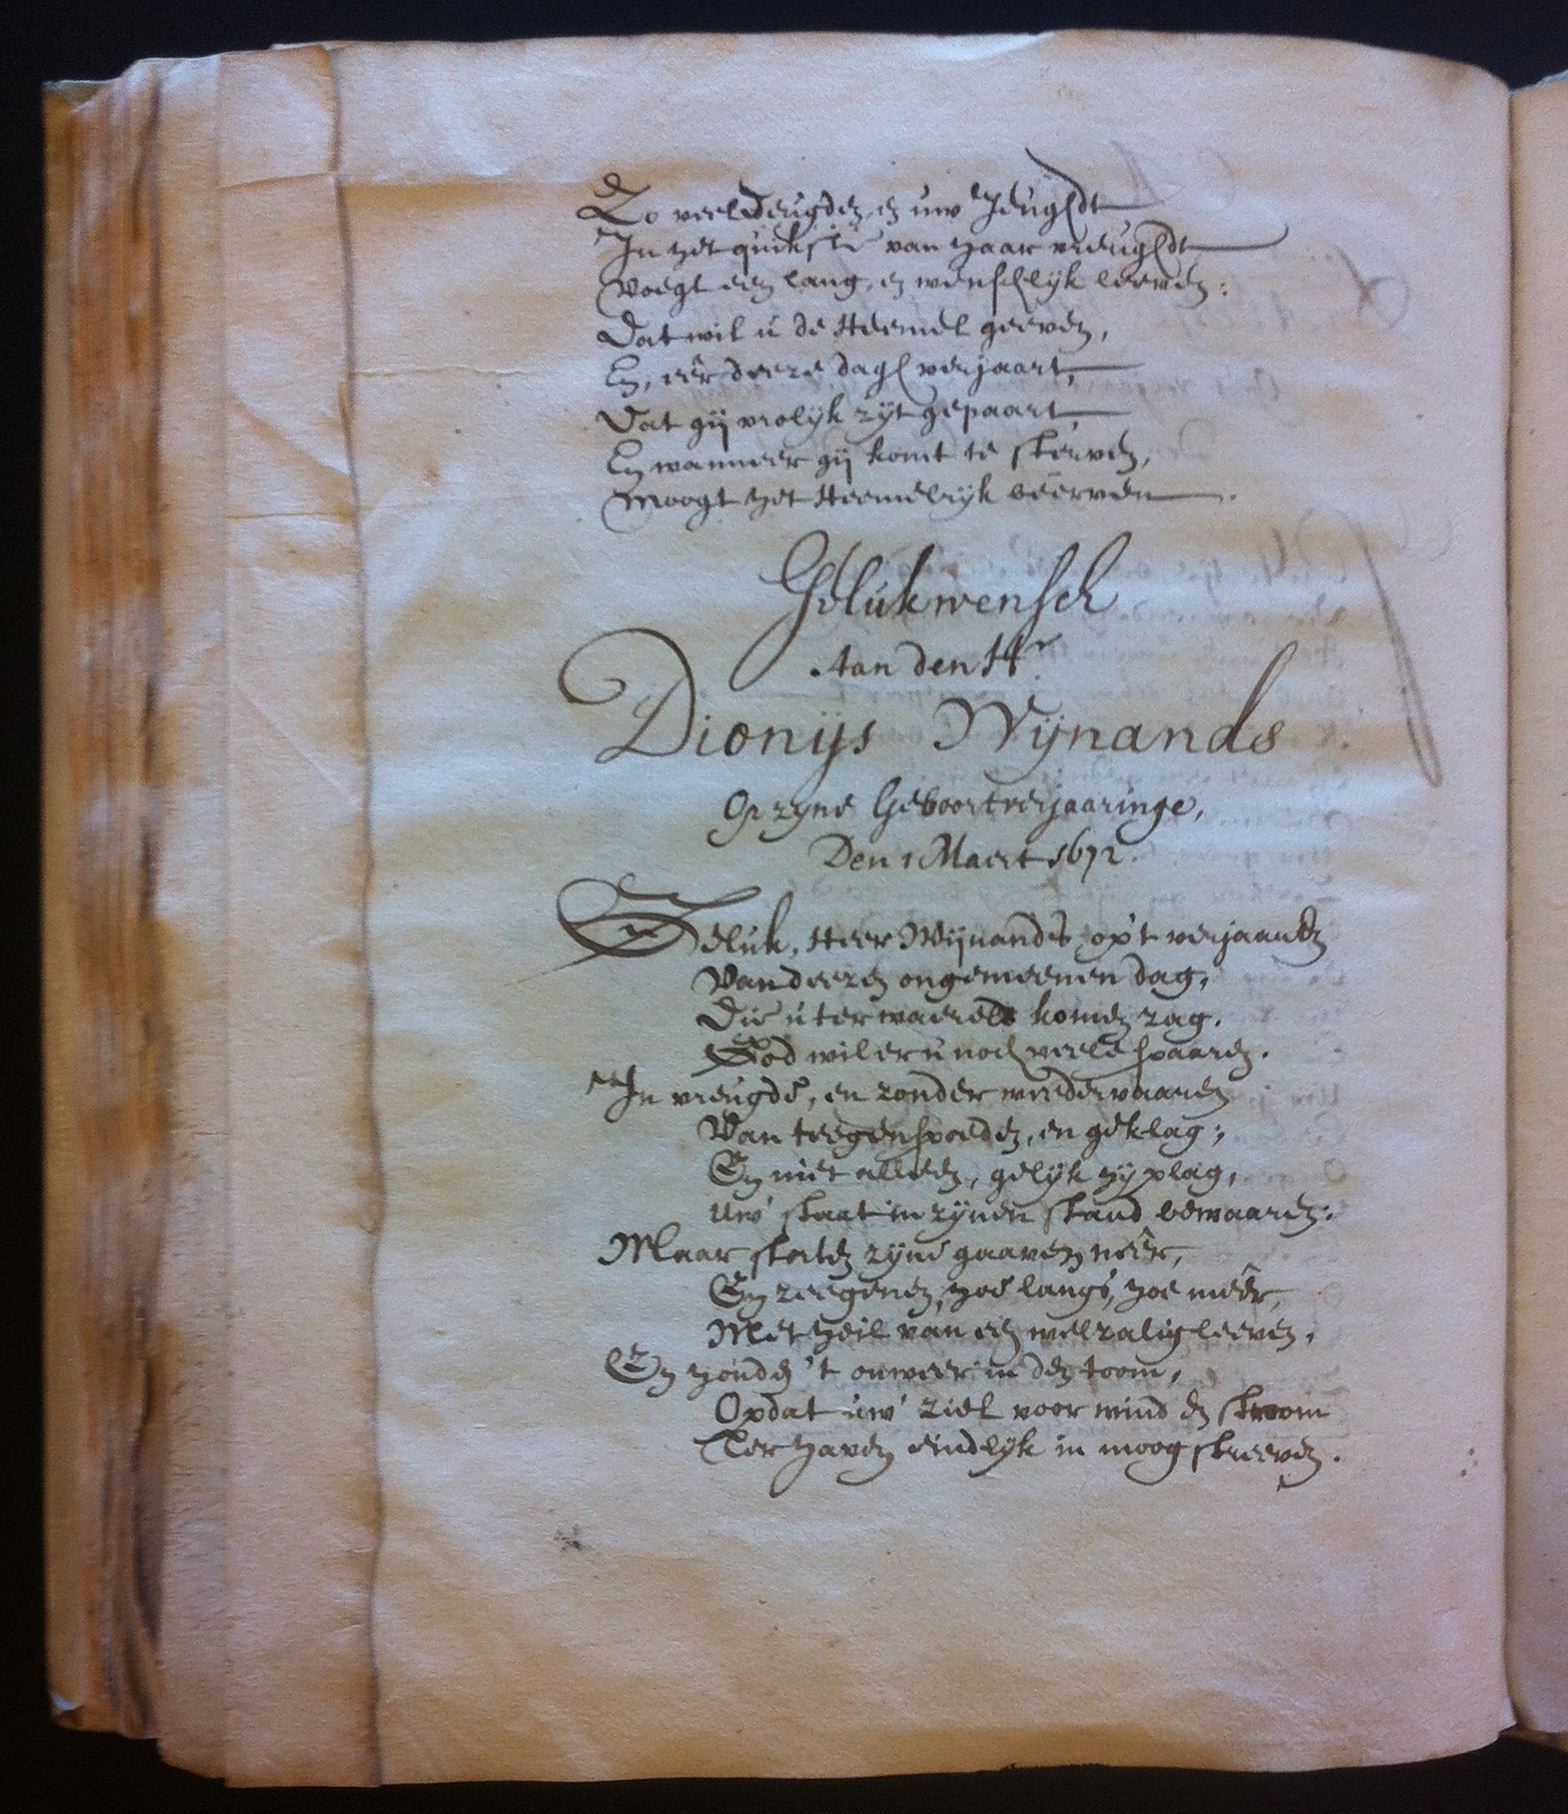 Zo veel deugden, en uw' Jeughdt
In het quikste van haar vreughdt
Voegt een lang, en wenschlyk leeven:
Dat wil u de Heemel geeven,
En, eêr deeze dagh verjaart,
Dat gij vrolyk zyt gepaart
En wanneer gij komt te sterven,
Moogt het Heemelryk beërven.
Gelukwensch
Aan den Hr.
Dionijs Wijnands
Op zyne Geboortverjaaringe,
Den 1 Maert 1672.
Geluk, Heer Wijnands, op't verjaaren
Van deezen ongemeenen dag,
Die u ter waereld komen zag.
God wil er u noch veele spaaren.
In vreugde, en zonder weedervaaren
Van teegenspoeden, en geklag;
En niet alleen, gelyk hy plag,
Uw' staat in zynen stand bewaaren:
Maar storten zyne gaaven neêr,
En zeegenen, hoe langs, hoe meêr,
Met heil van een welzalig leeven,
En houden 't onweer in den toom,
Opdat uw' ziel voor wind en stroom
Ter haven eindlyk in moog streeven.